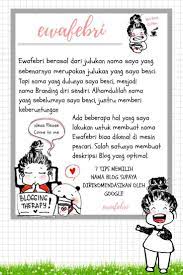 ewafebri
Ewafebri berasal dari julukan nama saya yang
sebenarnya merupakan julukan yang saya benci.
Tapi nama yang dulunya saya benci, menjadi
nama Branding diri sendiri. Alhamdulilah nama
yang sebelumnya saya benci, justru memberi
keberuntungan
Ada beberapa hal yang saya
lakukan untuk membuat nama
Ewafebri bisa dikenal di mesin
pencari. Salah satunya membuat
deskripsi Blog yang optimal.
ideas Please
Come to me
BLOGGING
THERAPY!
7 TIPS MEMILIH
NAMA BLOG SUPAYA
DIREKOMENDASIKAN OLEH
GOOGLE
ewafebri